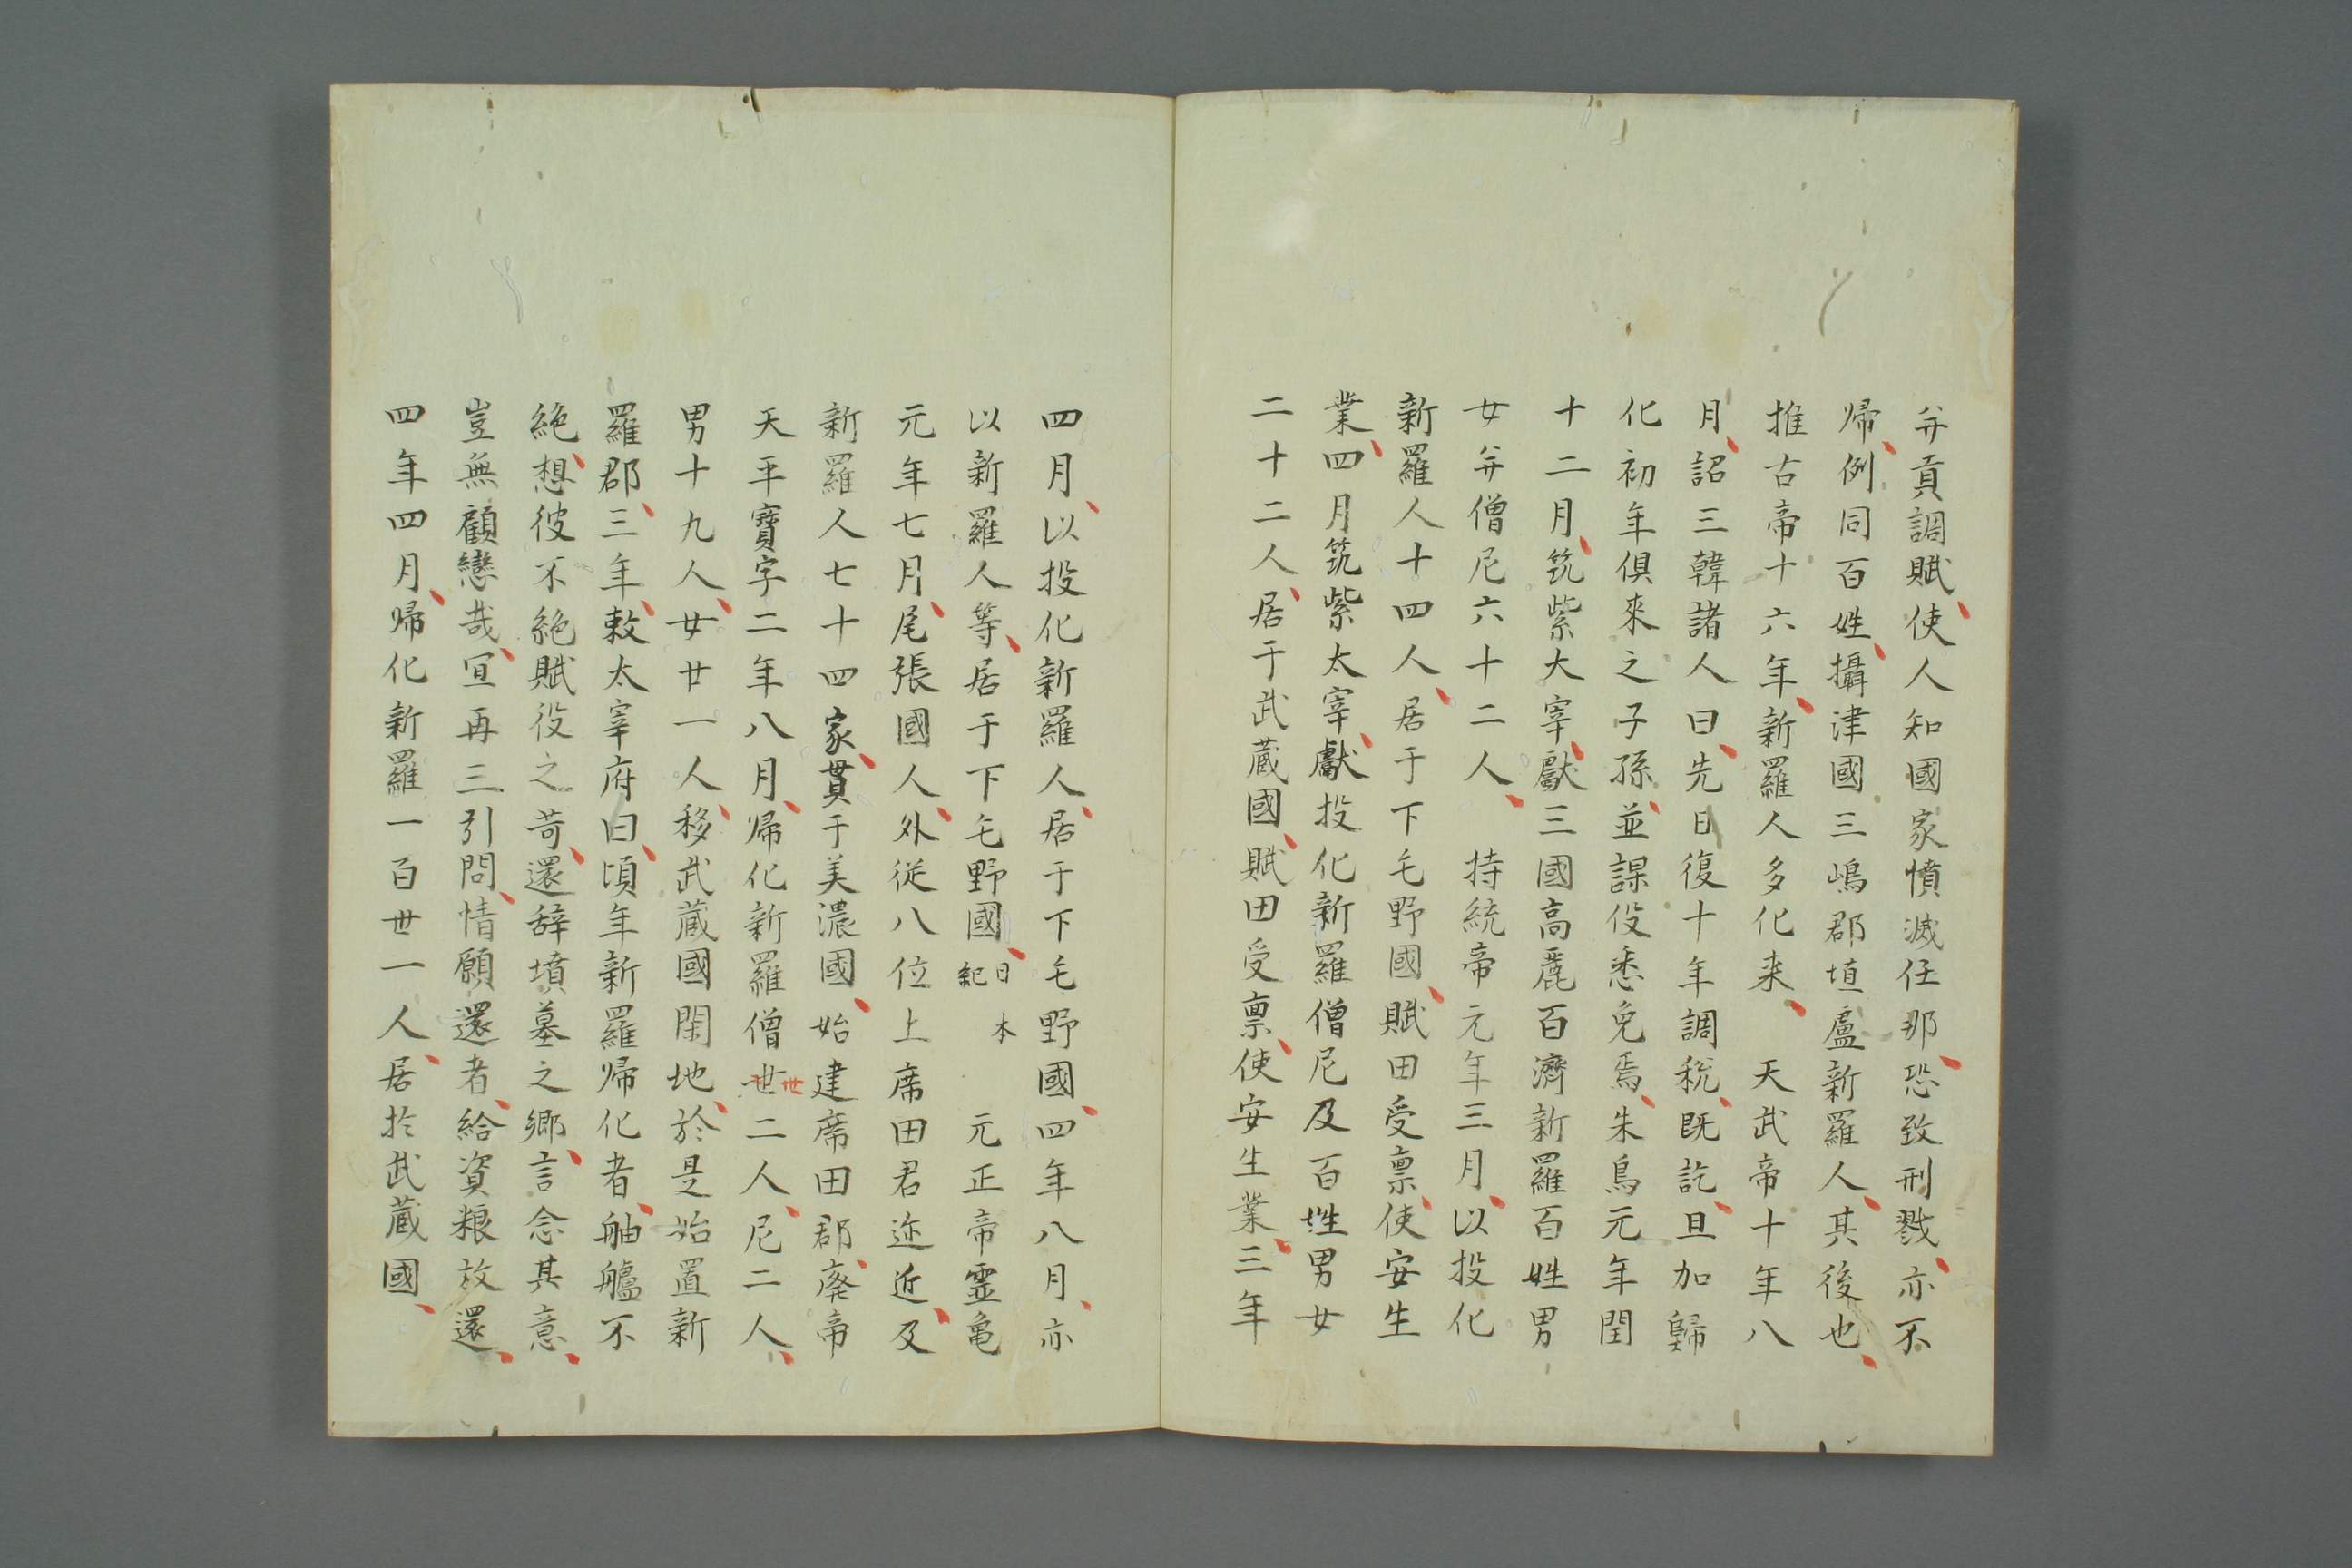 并貢調賦使人知國家憤滅任那恐致刑戮亦不
帰例同百姓攝津國三嶋郡埴盧新羅人其後也
推古帝十六年新羅人多化来　天武帝十年八
月詔三韓諸人曰先日復十年調税既訖且加歸
化初年倶來之子孫並課役悉免焉朱鳥元年閏
十二月筑紫大宰獻三國高麗百濟新羅百姓男
女并僧尼六十二人　持統帝元年三月以投化
新羅人十四人居于下毛野國賦田受禀使安生
業四月筑紫太宰獻投化新羅僧尼及百姓男女
二十二人居于武蔵國賦田受禀使安生業三年
四月以投化新羅人居于下毛野國四年八月亦
以新羅人等居于下毛野國日本紀　元正帝靈亀
元年七月尾張國人外従八位上席田君迩近及
新羅人七十四家貫于美濃國始建席田郡廃帝
天平寶字二年八月帰化新羅僧世丗二人尼二人
男十九人女廿一人移武蔵國閑地於是始置新
羅郡三年敕太宰府曰頃年新羅帰化者舳艫不
絶想彼不絶賦役之苛還辞墳墓之郷言念其意
豈無顧戀哉宜再三引問情願還者給資粮放還
四年四月帰化新羅一百世一人居於武蔵國